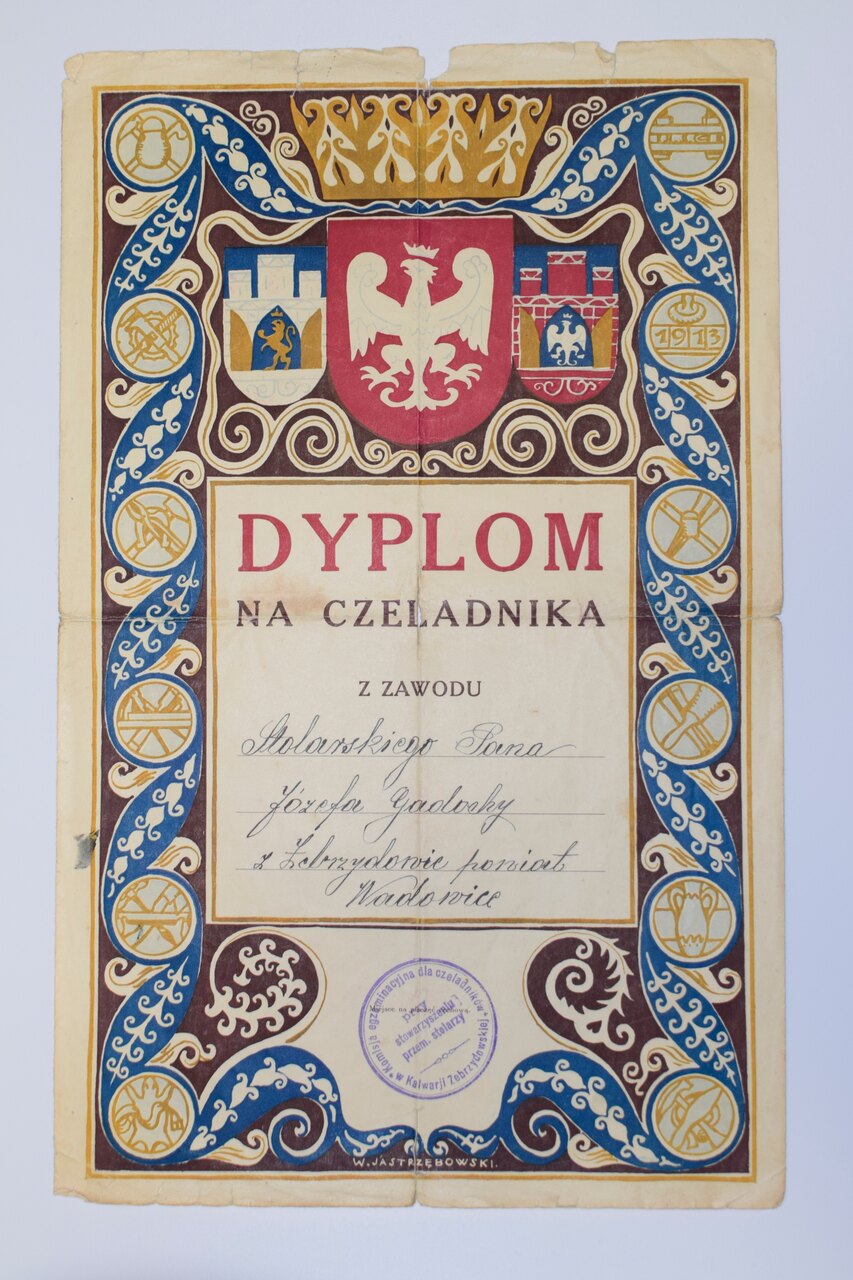 1913
DYPLOM
NA CZELADNIKA
Z ZAWODU
Stolarskiego Pana
Józefa Gadochy
z Zebrzydowic powiat
Wadowice
Komisja egzaminacyjna dla czeladników
przy
stowarzyszeniu
przem. stolarzy
w Kalwarji Zebrzydowskiej
Miejsce na
W. JASTRZĘBOWSKI.